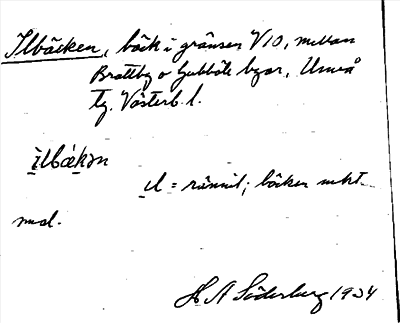 Ilbäcken, bäck i gränsen V10, mellan
Brattby o Gubböle byar, Umeå
lg. Västerb. l.
ìlbä́kən
il = rännil; bäcken mkt
smal.
H A Söderberg 1934